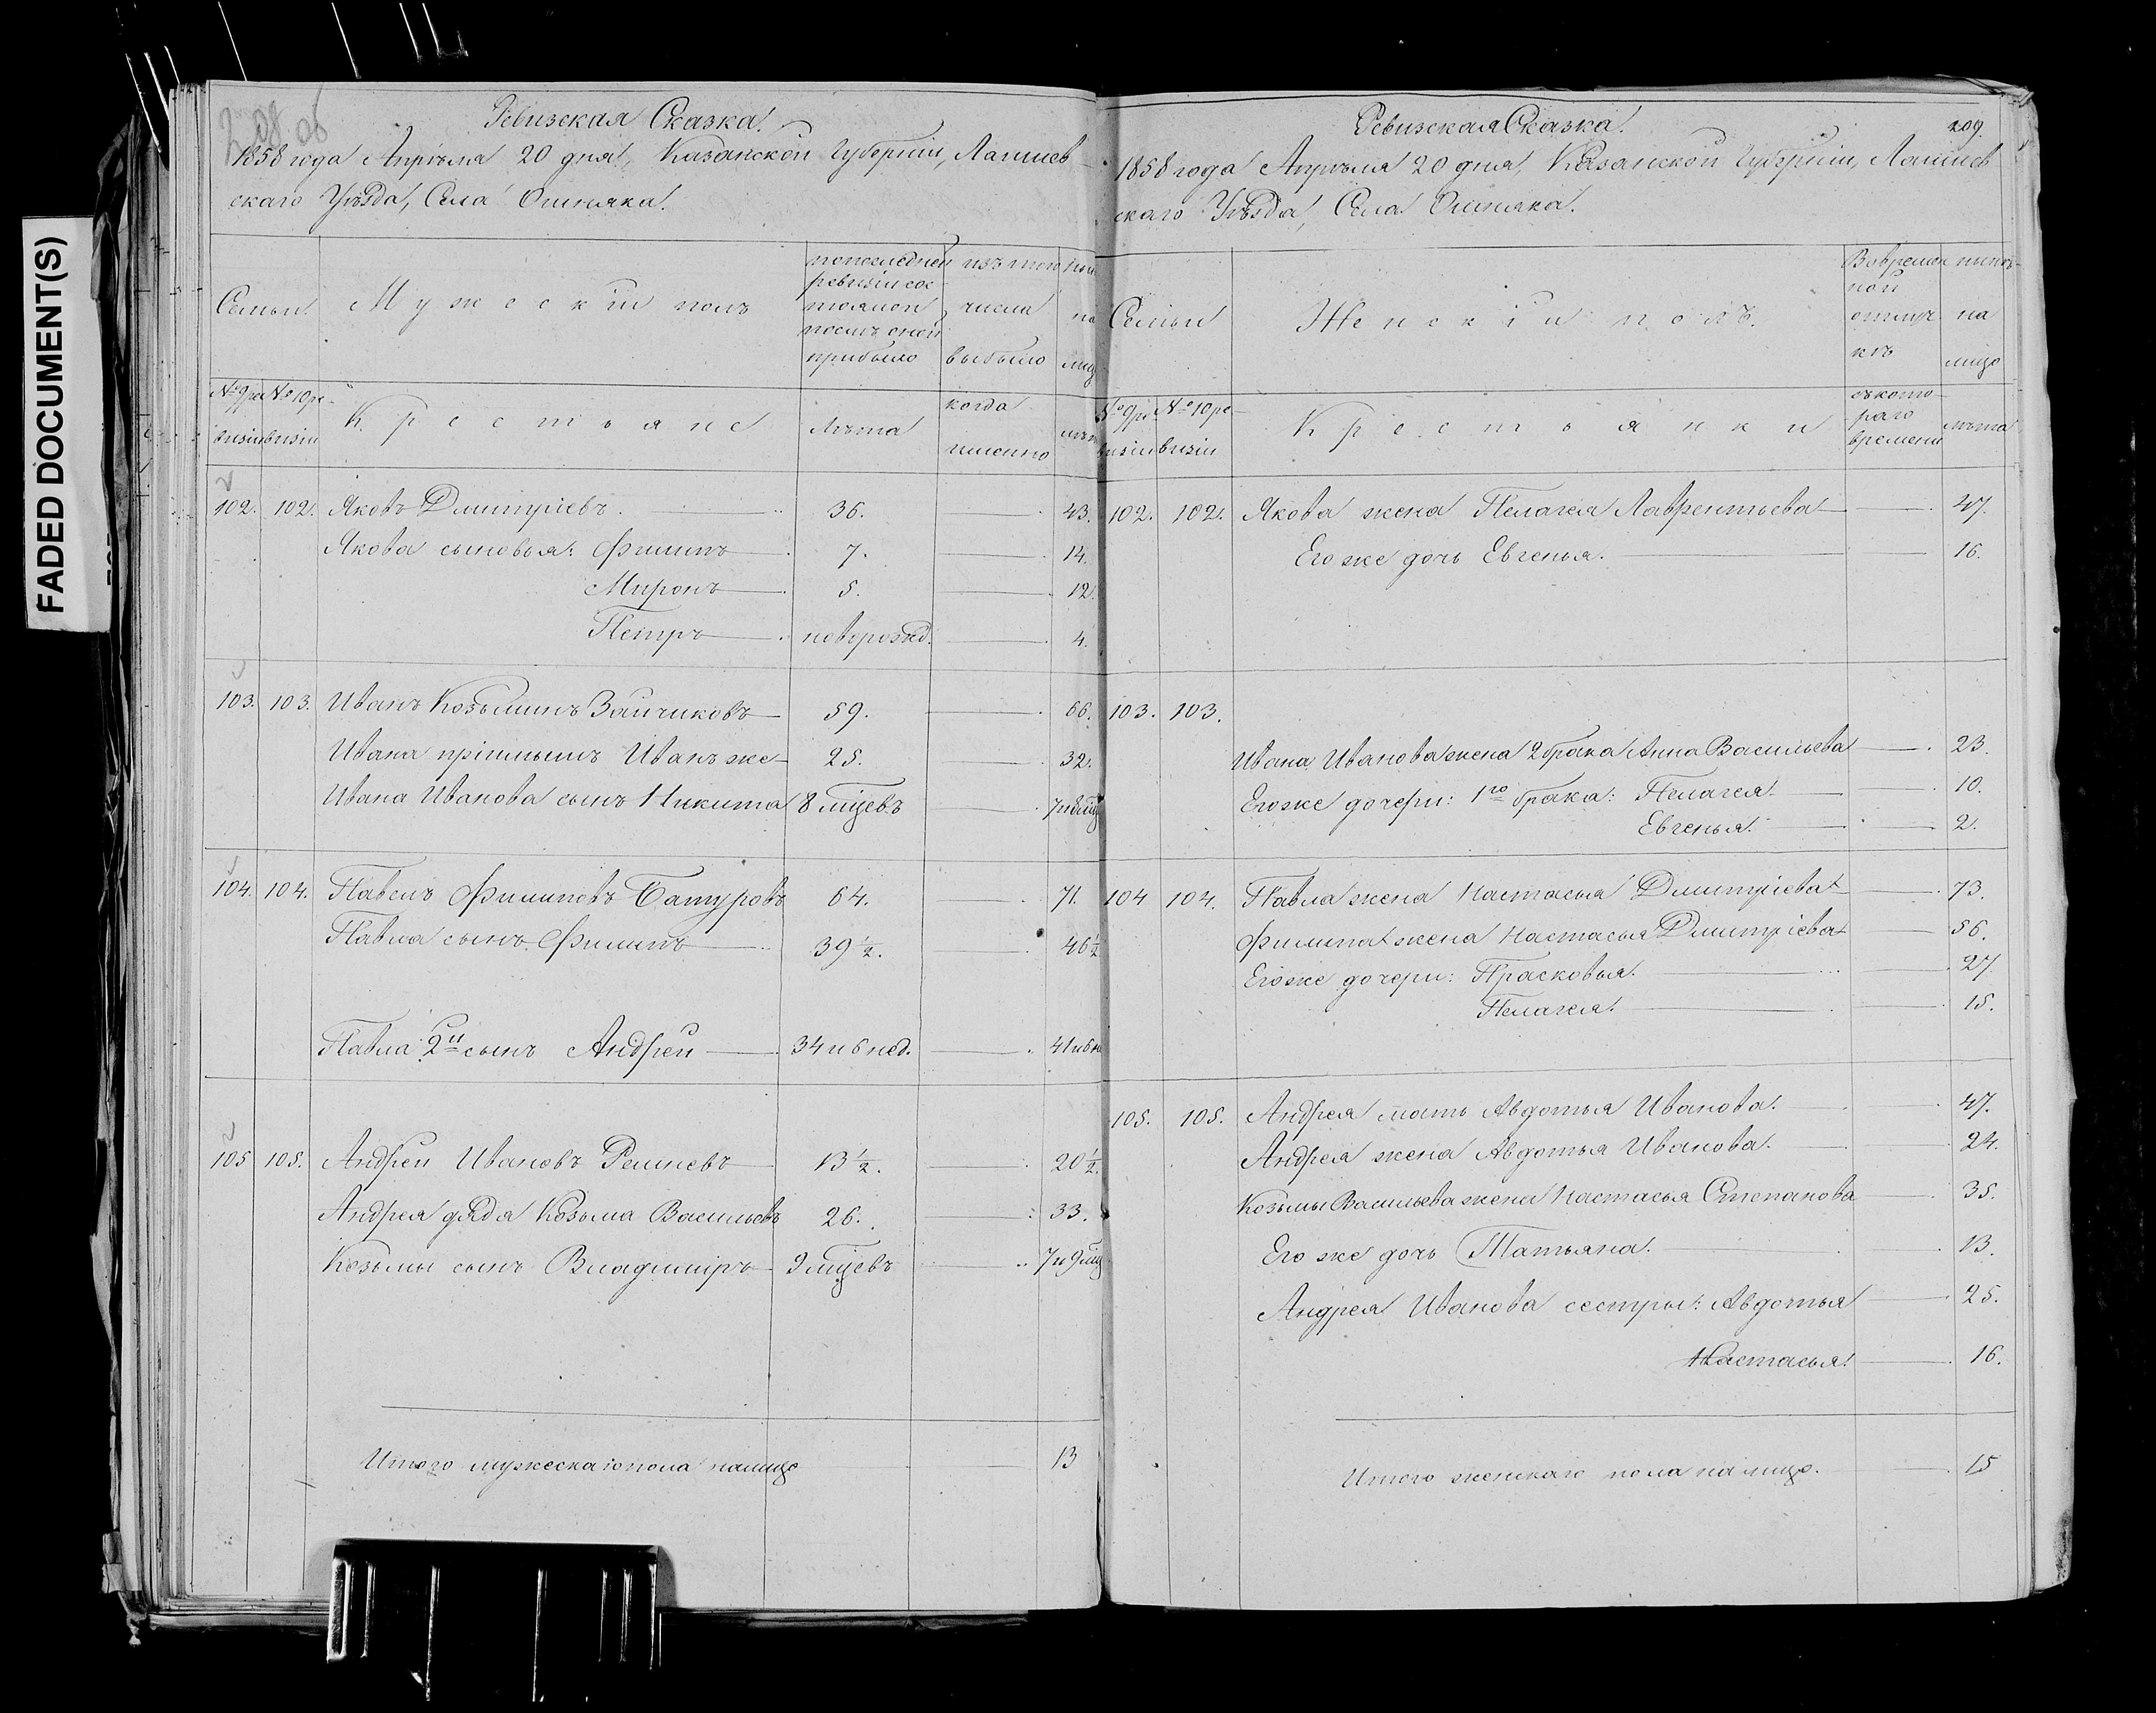 FADED DOCUMENT(S)
Ревизская Сказка.
1858 года Апрѣля 20 дня, Казанской Губерніи, Лаишев-
скаго Уѣзда, Села Ошняка.
Семьи.
Мужескій полъ
по последней ревизіи состоялоп после оной прибыло
изъ того числа выбыло
№ 9 ревизіи
№ 10 ревизіи
Крестьяне
Лѣта
когда именно
102. 102. Яковъ Дмитріевъ. 36. 43.
Якова сыновья: Филипъ 7. 14.
Миронъ 5. 12.
Петръ новорожд. 4.
103. 103. Иванъ Козьминъ Зайчиковъ 59. 66.
Ивана пріимышъ Иванъ же 25. 32.
Ивана Иванова сынъ Никита 8 мцевъ 7 и 8 мц
104. 104. Павелъ Филиповъ Батуровъ 64. 71.
Павла сынъ Филипъ 39 ½. 46 ½
Павла 2й сынъ Андрей 34 и 6 нед. 41 и 6 н
105 105. Андрей Ивановъ Решневъ 13 ½. 20 ½.
Андрея дядя Козьма Васильевъ 26. 33.
Козьмы сынъ Владиміръ 9 мцевъ 7 и 9 мц
Итого мужескаго пола налицо 13
Ревизская Сказка.
209
1858 года Апрѣля 20 дня, Казанской Губерніи, Лаишев
скаго Уѣзда, Села Ошняка.
Семьи
Женскій полъ.
Во времен ной отлучкѣ
нынѣ на лицо
№ 9 ревизіи
№ 10 ревизіи
Крестьянки
съ котораго времени
лѣта
102. 102. Якова жена Пелагея Лаврентьева 47.
Его же дочь Евгенья. 16.
103. 103.
Ивана Иванова жена 2 брака Анна Васильева 23.
Его же дочери: 1го брака: Пелагея. 10.
Евгенья. 2.
104 104. Павла жена Настасья Дмитріева 73.
Филипа жена Настасья Дмитріева 56.
Его же дочери: Прасковья. 27.
Пелагея. 15.
105. 105. Андрея мать Авдотья Иванова. 47.
Андрея жена Авдотья Иванова. 24.
Козьмы Васильева жена Настасья Степанова 35.
Его же дочь Татьяна. 13.
Андрея Иванова сестры: Авдотья 25.
Настасья. 16.
Итого женскаго пола на лицо. 15